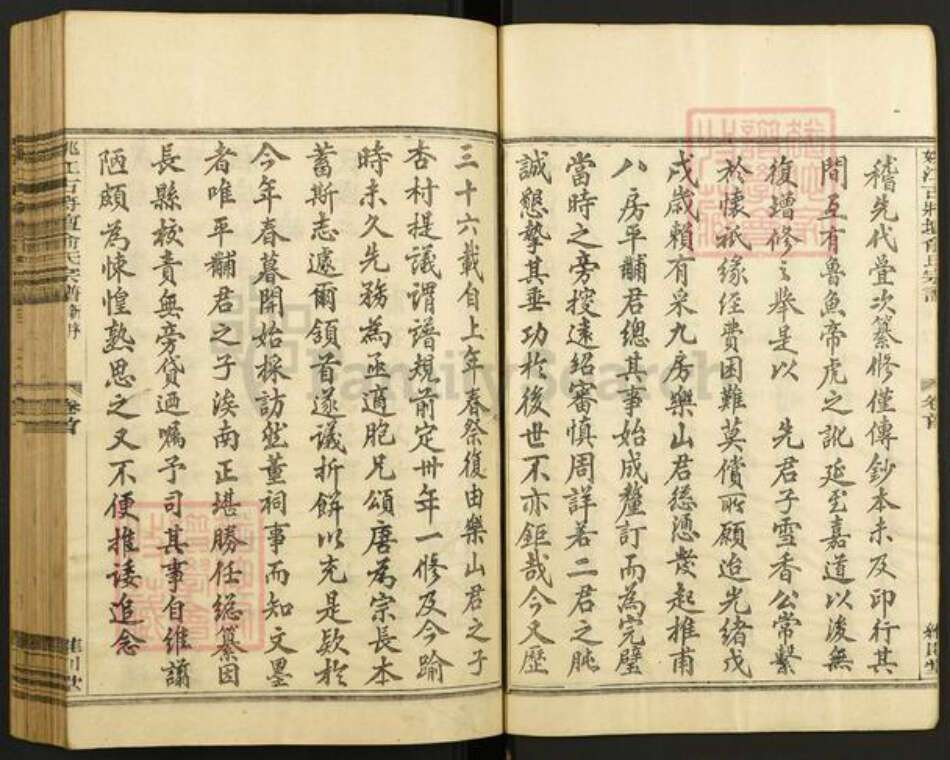 稽先代曡次纂修僅傳鈔本未及印行其
間互有魯魚帝虎之訛延至嘉道以後無
復增修之舉是以　先君子雪香公常繫
於懷祇緣經費困難莫償所願迨光緒戊
戌歲賴有宋九房樂山君慫慂發起推甫
八房平黼君總其事始成釐訂而為完璧
當時之旁搜遠紹審慎周詳若二君之肫
誠懇摯其垂功於後世不亦鉅哉今又歷
卷首
三十六載自上年春祭復由樂山君之子
杏村提議謂譜規前定卅年一修及今踰
時未久先務為亟適胞兄頌唐為宗長本
蓄斯志遽爾領首遂議折餅以充是欵於
今年春暮開始採訪然董祠事而知文墨
者唯平黼君之子涘南正堪勝任総纂因
長縣校責無旁貸迺囑予司其事自維譾
陋頗為悚惶熟思之又不便推諉追念
卷首
Family Search